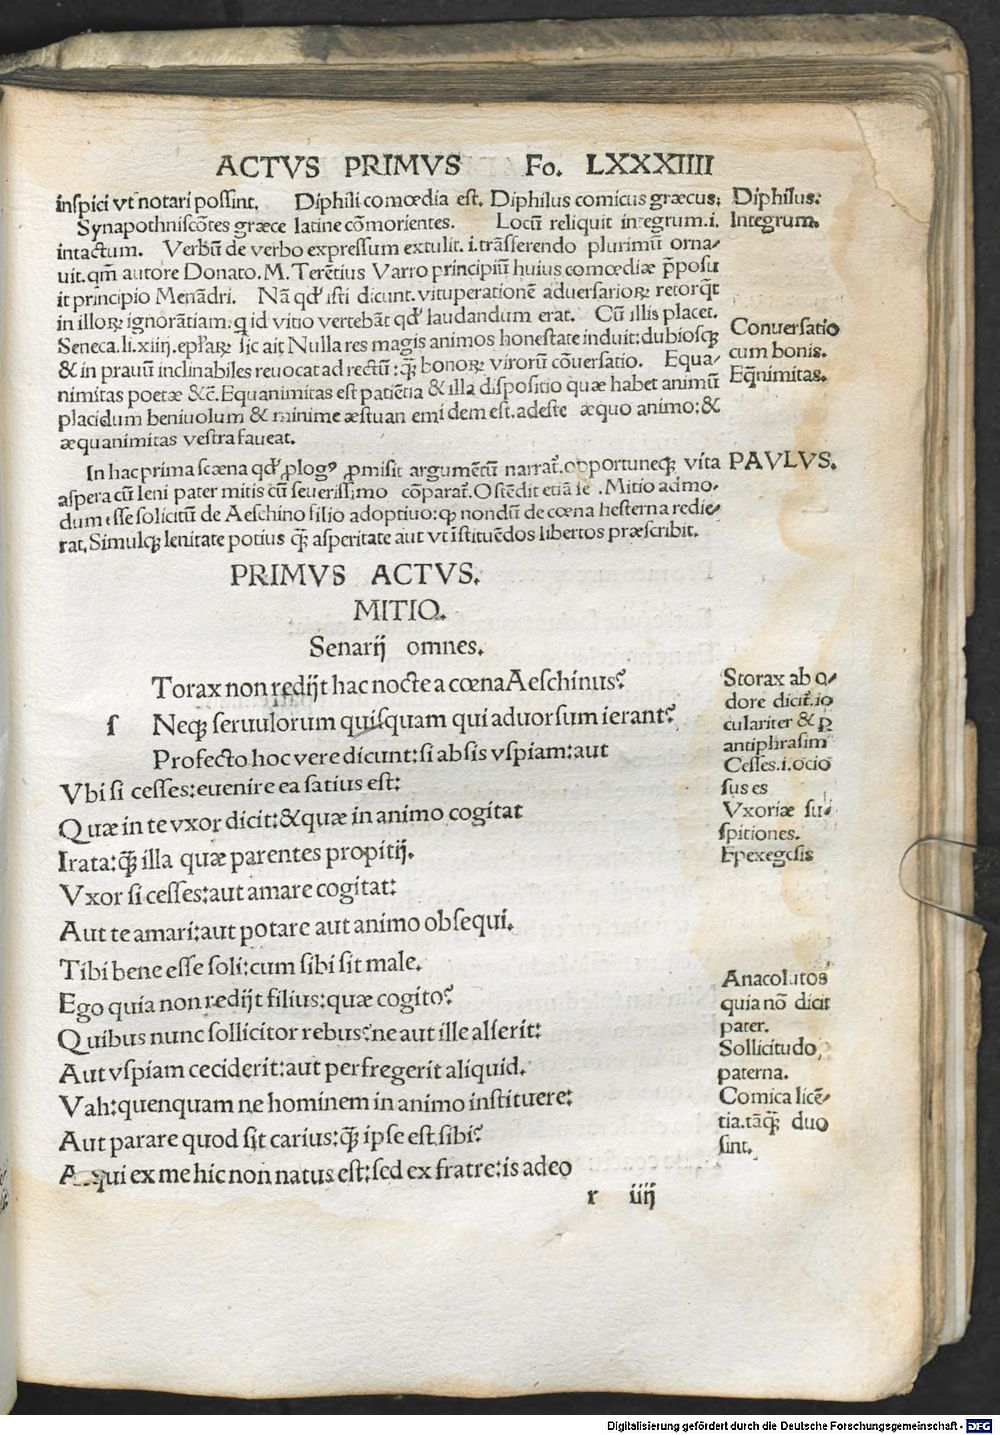 ACTVS PRIMVS Fo. LXXXIIII
inspici vt notari possint. Diphili comœdia est. Diphilus comicus græcus;
Synapothniscōtes græce latine cōmorientes. Locū reliquit integrum.i.
intactum. Verbū de verbo expressum extulit.i.trāsferendo plurimū orna/
uit.qm̄ autore Donato.M.Terētius Varro principiū huius comœdiæ p̄posu
it principio Menādri. Nā qď isti dicunt.vituperationē aduersarioꝝ retorq̄t
in illoꝝ ignorātiam.q id vitio vertebāt qď laudandum erat. Cū illis placet.
Seneca.li.xiiij.epľaꝝ sic ait Nulla res magis animos honestate induit:dubiosqꝫ
& in prauū inclinabiles reuocat ad rectū:qꝫ bonoꝝ virorū cōuersatio. Equa/
nimitas poetæ &c̄.Equanimitas est patiētia & illa dispositio quæ habet animū
placidum beniuolum & minime æstuan em idem est.adeste æquo animo:&
æquanimitas vestra faueat.
In hac prima scæna qď ꝓlogꝰ ꝓmisit argumētū narrat̉.opportuneqꝫ vita
aspera cū leni pater mitis cū seuerissimo cōparat̉.Ostēdit etiā se .Mitio admo.
dum esse solicitū de Aeschino filio adoptiuo:qꝫ nondū de cœna hesterna redie/
rat.Simulqꝫ lenitate potius qꝫ̄ asperitate aut vt īstituēdos libertos præscribit.
PRIMVS ACTVS.
MITIO.
Senarij omnes.
ſ
Torax non redijt hac nocte a cœna Aeschinus?
Neqꝫ seruulorum quisquam qui aduorsum ierant?
Profecto hoc vere dicunt:si absis vspiam:aut
Vbi si cesses:euenire ea satius est:
Quæ in te vxor dicit:& quæ in animo cogitat
Irata:qꝫ̄ illa quæ parentes propitij.
Vxor si cesses:aut amare cogitat:
Aut te amari:aut potare aut animo obsequi.
Tibi bene esse soli:cum sibi sit male.
Ego quia non redijt filius:quæ cogito?
Quibus nunc sollicitor rebus?ne aut ille alserit:
Aut vspiam ceciderit:aut perfregerit aliquid.
Vah:quenquam ne hominem in animo instituere:
Aut parare quod sit carius:qꝫ̄ ipse est sibi?
Atqui ex me hic non natus est:sed ex fratre:is adeo
r iiij
Diphilus:
Integrum.
Conuersatio
cum bonis.
Eq̄nimitas.
PAVLVS.
Storax ab o/
dore dicit̉.io
culariter & ꝑ
antiphrasim
Cesses.i.ocio
sus es
Vxoriæ su/
spitiones.
Epexegesis
Anacolutos
quia nō dicit
pater.
Sollicitudo
paterna.
Comica licē/
tia.tāqꝫ̄ duo
sint.
Digitalisierung gefördert durch die Deutsche Forschungsgemeinschaft - DFG